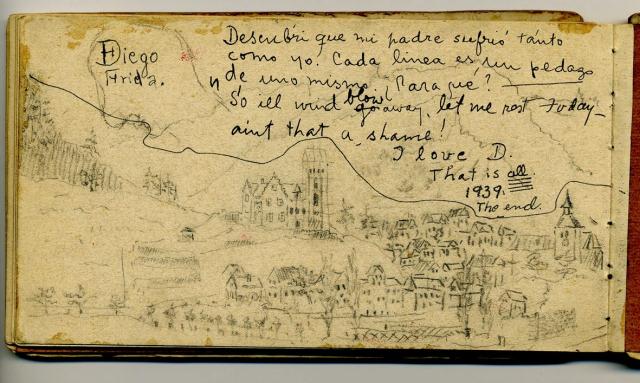 Diego
Frida.
Descubrí que mi padre sufrió tánto
como yo. Cada linea es un pedazo
de uno mismo, Para qué?
So ill wind blow
go away, let me rest today_
aint that a shame!
I love D.
That is all.
1939.
The end.